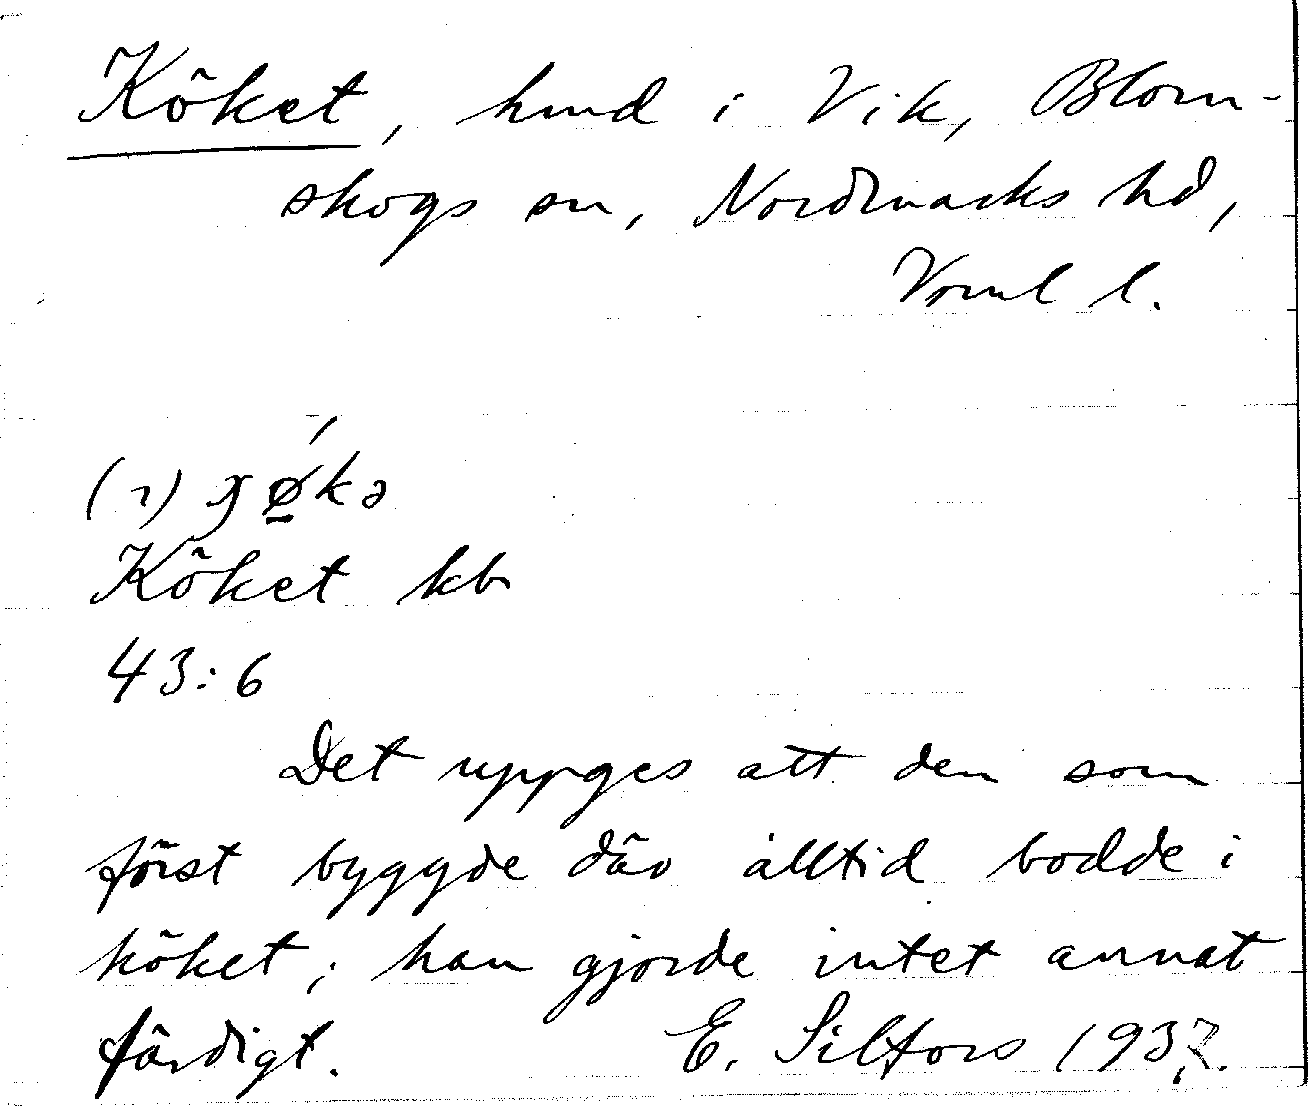 Köket, hmd i Vik, Blom-
skogs sn, Nordmarks hd,
Vrml l.
(1) ɟǿ̱kə
Köket kb
43:6
Det uppges att den som
först byggde där alltid bodde i
köket; han gjorde intet annat
färdigt. E. Silfors